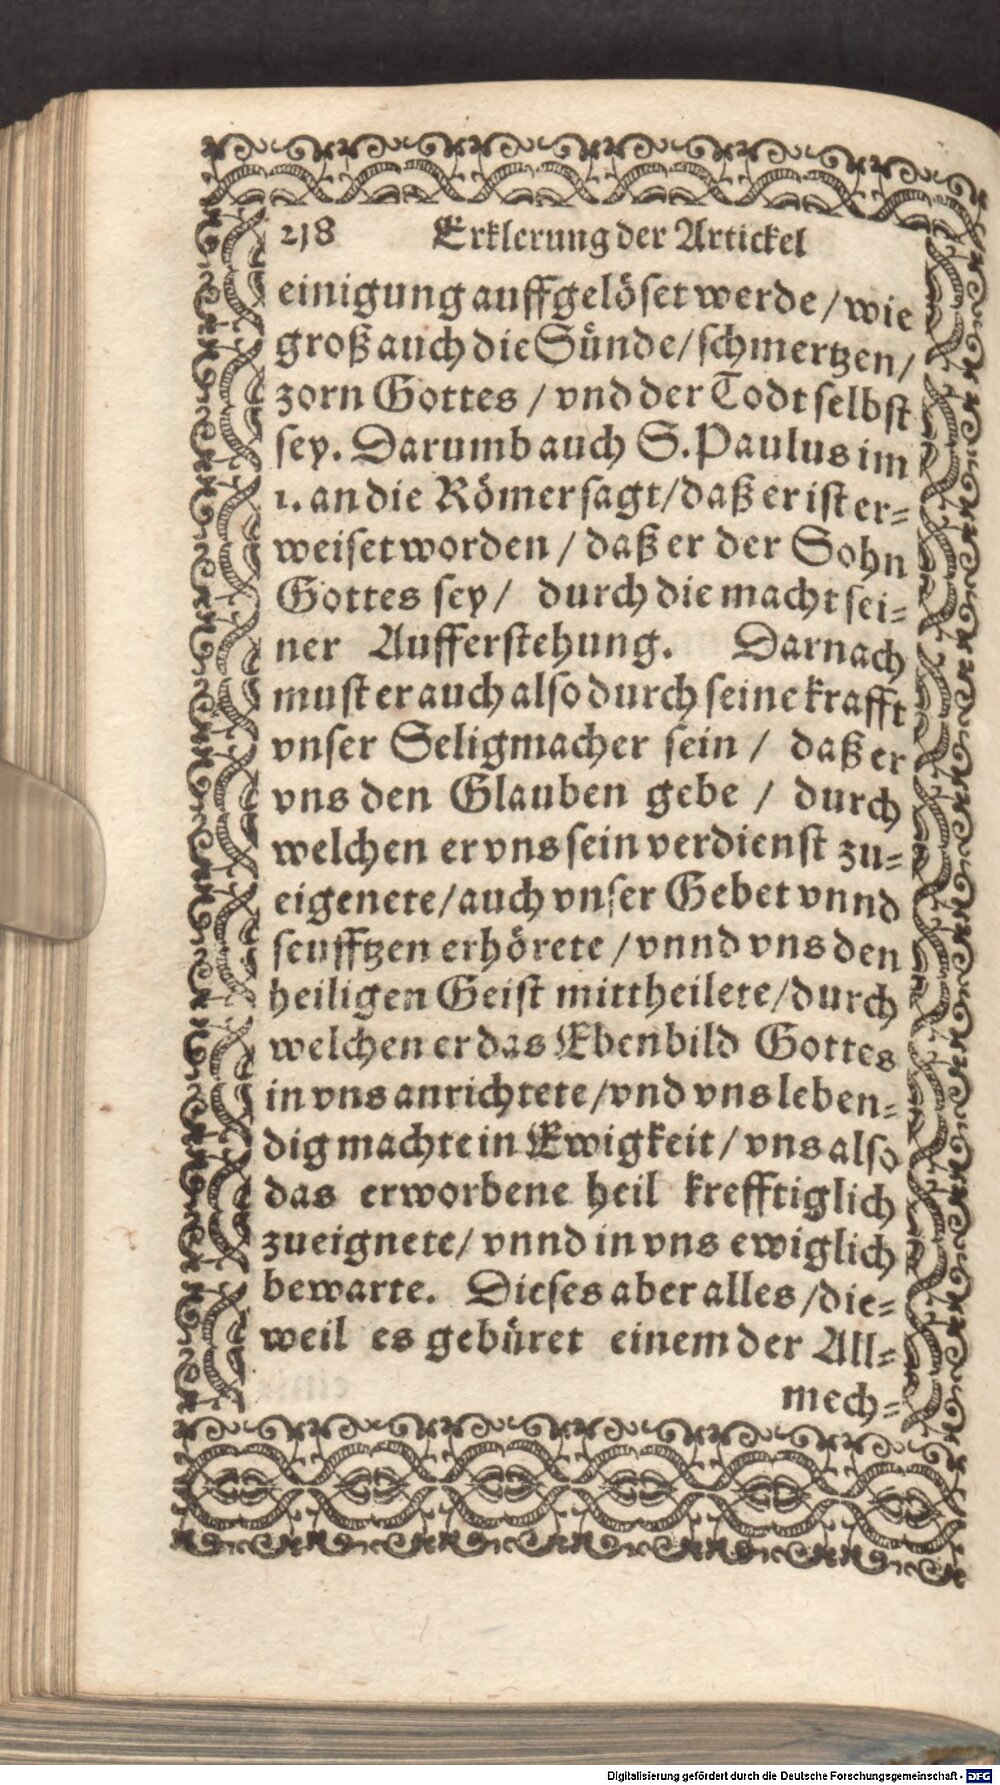 218 Erklerung der Artickel
einigung auffgelöset werde / wie
groß auch die Sünde / schmertzen /
zorn Gottes / vnd der Todt selbst
sey. Darumb auch S. Paulus im
1. an die Römer sagt / daß er ist er-
weiset worden / daß er der Sohn
Gottes sey / durch die macht sei-
ner Aufferstehung. Darnach
must er auch also durch seine krafft
vnser Seligmacher sein / daß er
vns den Glauben gebe / durch
welchen er vns sein verdienst zu-
eigenete / auch vnser Gebet vnnd
seufftzen erhörete / vnnd vns den
heiligen Geist mittheilete / durch
welchen er das Ebenbild Gottes
in vns anrichtete / vnd vns leben-
dig machte in Ewigkeit / vns also
das erworbene heil krefftiglich
zueignete / vnnd in vns ewiglich
bewarte. Dieses aber alles / die-
weil es gebüret einem der All-
mech-
Digitalisierung gefördert durch die Deutsche Forschungsgemeinschaft - DFG